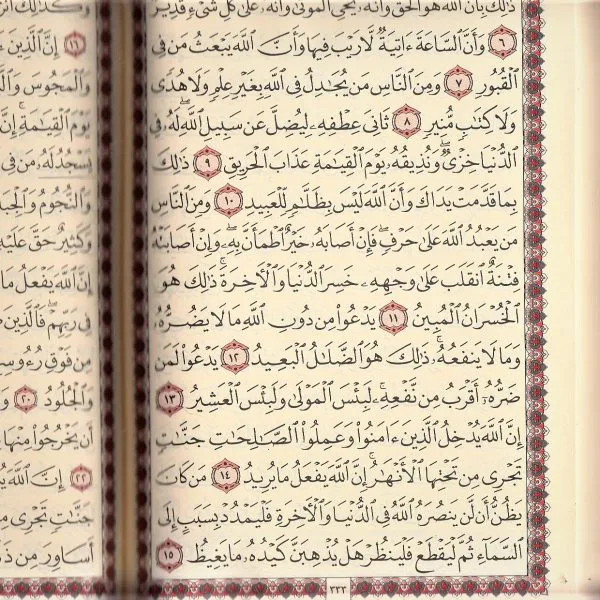 ذَٰلِكَ بِأَنَّ ٱللَّهَ هُوَ ٱلْحَقُّ وَأَنَّهُۥ يُحْىِ ٱلْمَوْتَىٰ وَأَنَّهُۥ عَلَىٰ كُلِّ شَىْءٍ قَدِيرٌ
٦ وَأَنَّ ٱلسَّاعَةَ ءَاتِيَةٌ لَّا رَيْبَ فِيهَا وَأَنَّ ٱللَّهَ يَبْعَثُ مَن فِى
ٱلْقُبُورِ ٧ وَمِنَ ٱلنَّاسِ مَن يُجَٰدِلُ فِى ٱللَّهِ بِغَيْرِ عِلْمٍ وَلَا هُدًى
وَلَا كِتَٰبٍ مُّنِيرٍ ٨ ثَانِىَ عِطْفِهِۦ لِيُضِلَّ عَن سَبِيلِ ٱللَّهِ ۖ لَهُۥ فِى
ٱلدُّنْيَا خِزْىٌ ۖ وَنُذِيقُهُۥ يَوْمَ ٱلْقِيَٰمَةِ عَذَابَ ٱلْحَرِيقِ ٩ ذَٰلِكَ
بِمَا قَدَّمَتْ يَدَاكَ وَأَنَّ ٱللَّهَ لَيْسَ بِظَلَّٰمٍ لِّلْعَبِيدِ ١٠ وَمِنَ ٱلنَّاسِ
مَن يَعْبُدُ ٱللَّهَ عَلَىٰ حَرْفٍ ۖ فَإِنْ أَصَابَهُۥ خَيْرٌ ٱطْمَأَنَّ بِهِۦ ۖ وَإِنْ أَصَابَتْهُ
فِتْنَةٌ ٱنقَلَبَ عَلَىٰ وَجْهِهِۦ خَسِرَ ٱلدُّنْيَا وَٱلْءَاخِرَةَ ۚ ذَٰلِكَ هُوَ
ٱلْخُسْرَانُ ٱلْمُبِينُ ١١ يَدْعُوا۟ مِن دُونِ ٱللَّهِ مَا لَا يَضُرُّهُۥ
وَمَا لَا يَنفَعُهُۥ ۚ ذَٰلِكَ هُوَ ٱلضَّلَٰلُ ٱلْبَعِيدُ ١٢ يَدْعُوا۟ لَمَن
ضَرُّهُۥٓ أَقْرَبُ مِن نَّفْعِهِۦ ۚ لَبِئْسَ ٱلْمَوْلَىٰ وَلَبِئْسَ ٱلْعَشِيرُ ١٣
إِنَّ ٱللَّهَ يُدْخِلُ ٱلَّذِينَ ءَامَنُوا۟ وَعَمِلُوا۟ ٱلصَّٰلِحَٰتِ جَنَّٰتٍ
تَجْرِى مِن تَحْتِهَا ٱلْأَنْهَٰرُ ۚ إِنَّ ٱللَّهَ يَفْعَلُ مَا يُرِيدُ ١٤ مَن كَانَ
يَظُنُّ أَن لَّن يَنصُرَهُ ٱللَّهُ فِى ٱلدُّنْيَا وَٱلْءَاخِرَةِ فَلْيَمْدُدْ بِسَبَبٍ إِلَى
ٱلسَّمَآءِ ثُمَّ لْيَقْطَعْ فَلْيَنظُرْ هَلْ يُذْهِبَنَّ كَيْدُهُۥ مَا يَغِيظُ ١٥
٣٣٣
وَكَذَٰلِكَ
١٦ إِنَّ ٱلَّذِينَ
وَٱلْمَجُوسَ
يَوْمَ ٱلْقِيَٰمَةِ ۚ إِنَّ
يَسْجُدُ لَهُۥ مَن فِى
وَٱلنُّجُومُ
وَكَثِيرٌ حَقَّ عَلَيْهِ
إِنَّ ٱللَّهَ يَفْعَلُ مَا
فِى رَبِّهِمْ ۖ فَٱلَّذِينَ
مِن فَوْقِ
وَٱلْجُلُودُ ٢٠
أَن يَخْرُجُوا۟ مِنْهَا
٢٢ إِنَّ ٱللَّهَ
جَنَّٰتٍ تَجْرِى
أَسَاوِرَ مِن